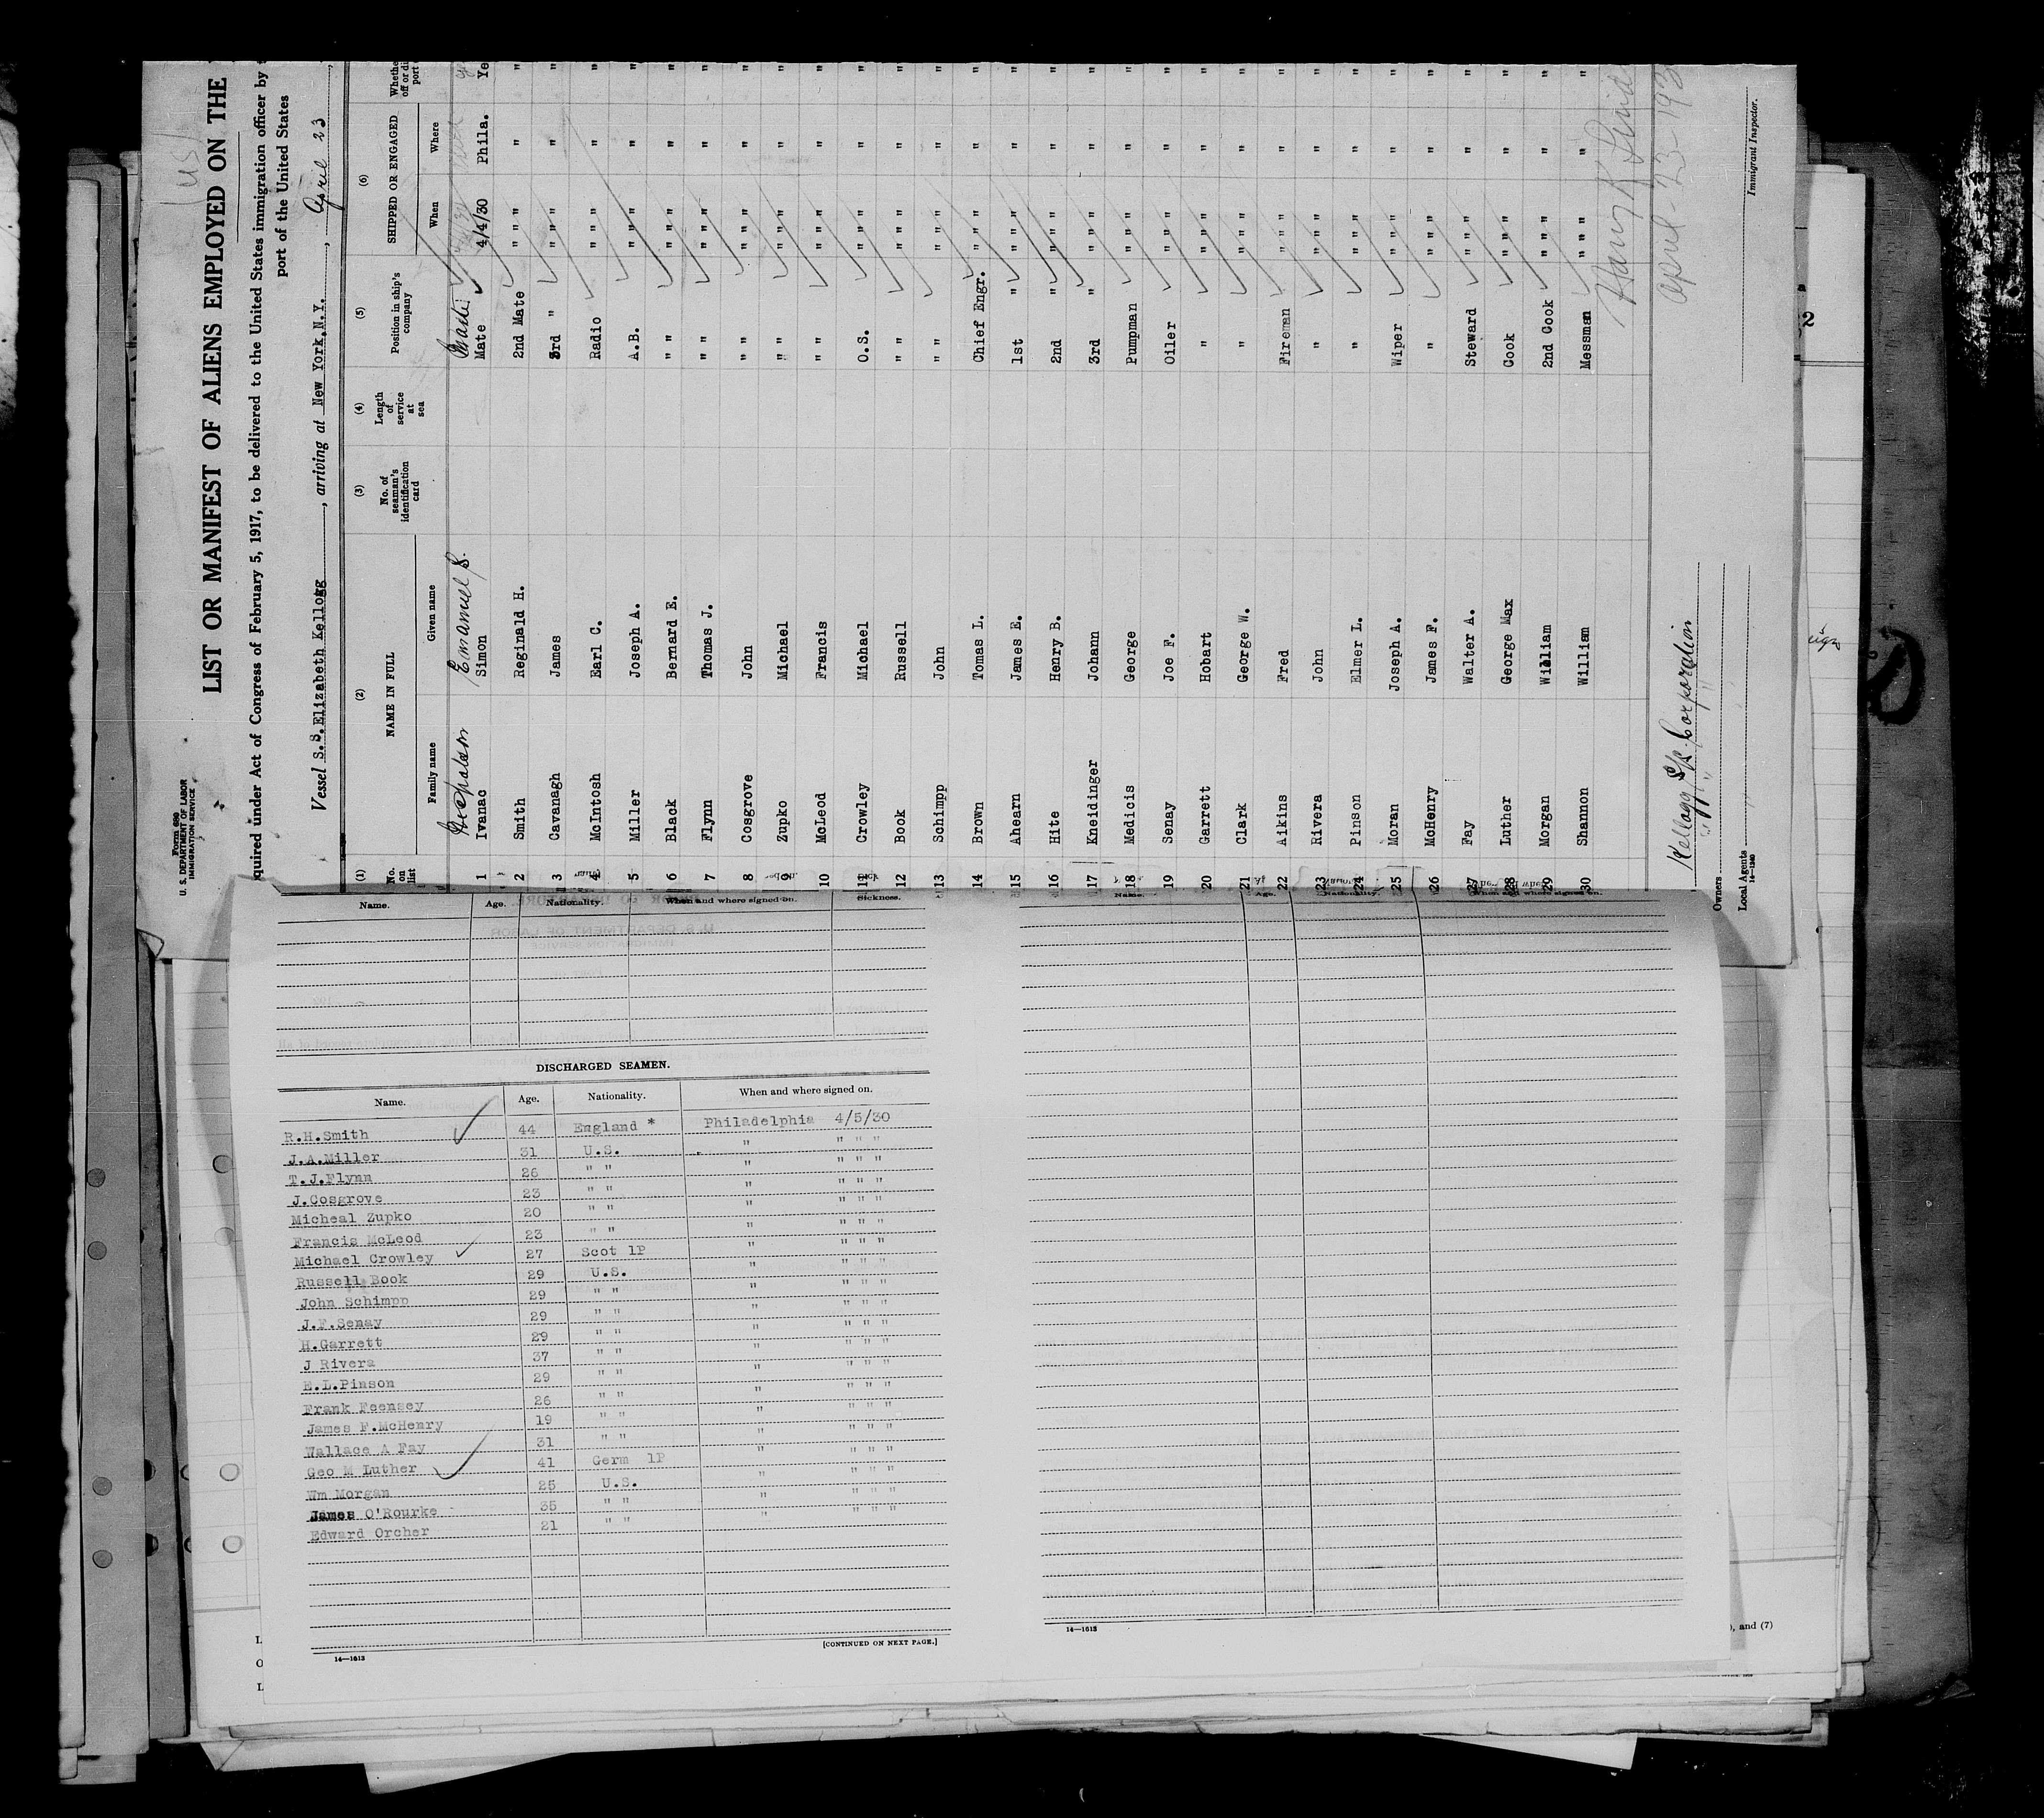 Form 680
U. S. DEPARTMENT OF LABOR
IMMIGRATION SERVICE
LIST OR MANIFEST OF ALIENS EMPLOYED ON THE
quired under Act of Congress of February 5, 1917, to be delivered to the United States immigration officer by
port of the United States
Vessel S.S. Elizabeth Kellogg, arriving at New York, N.Y., April 23,
(1) (2) (3) (4) (5) (6)
No. on list NAME IN FULL No. of seaman's identification card Length of service at sea Position in ship's company SHIPPED OR ENGAGED
Family name Given name When Where
Emanuel S. Master
1 Ivanac Simon Mate 4/4/30 Phila. Ye
2 Smith Reginald H. 2nd Mate " " " " "
3 Cavanagh James 3rd " " " " " "
4 McIntosh Earl C. Radio " " " " "
5 Miller Joseph A. A.B. " " " " "
6 Black Bernard E. " " " " " " "
7 Flynn Thomas J. " " " " " " "
8 Cosgrove John " " " " " " "
9 Zupko Michael " " " " " " "
10 McLeod Francis " " " " " " "
11 Crowley Michael O.S. " " " " "
12 Book Russell " " " " " " "
13 Schimpp John " " " " " " "
14 Brown Tomas L. Chief Engr. " " " " "
15 Ahearn James E. 1st " " " " " "
16 Hite Henry B. 2nd " " " " " "
17 Kneidinger Johann 3rd " " " " " "
18 Medicis George Pumpman " " " " "
19 Senay Joe F. Oiler " " " " "
20 Garrett Hobart " " " " " "
21 Clark George W. " " " " " "
22 Aikins Fred Fireman " " " " "
23 Rivera John " " " " " "
24 Pinson Elmer L. " " " " " "
25 Moran Joseph A. Wiper " " " " "
26 McHenry James F. " " " " " "
27 Fay Walter A. Steward " " " " "
28 Luther George Max Cook " " " " "
29 Morgan William 2nd Cook " " " " "
30 Shannon Willian Messman " " " " "
Owners Kellogg S/S. Corporation
Local Agents " "
14-1240
Harry R
April-23-193
Immigrant Inspector.
Name. Age. Nationality. When and where signed on. Sickness.
DISCHARGED SEAMEN.
Name. Age. Nationality. When and where signed on.
R.H.Smith 44 England * Philadelphia 4/5/30
J.A.Miller 31 U.S. " " " "
T.J.Flynn 26 " " " " " "
J.Cosgrove 23 " " " " " "
Micheal Zupko 20 " " " " " "
Francis McLeod 23 " " " " " "
Michael Crowley 27 Scot 1P " " " "
Russell Book 29 U.S. " " " "
John Schimpp 29 " " " " " "
J.F.Senay 29 " " " " " "
H.Garrett 29 " " " " " "
J Rivera 37 " " " " " "
E.L.Pinson 29 " " " " " "
Frank Feensey 26 " " " " " "
James F.McHenry 19 " " " " " "
Wallace A Fay 31 " " " " " "
Geo M Luther 41 Germ 1P " " " "
Wm Morgan 25 U.S. " " " "
James O'Rourke 35 " " " " " "
Edward Orcher 21 " " "
[CONTINUED ON NEXT PAGE.]
14—1613
14—1613
, and (7)